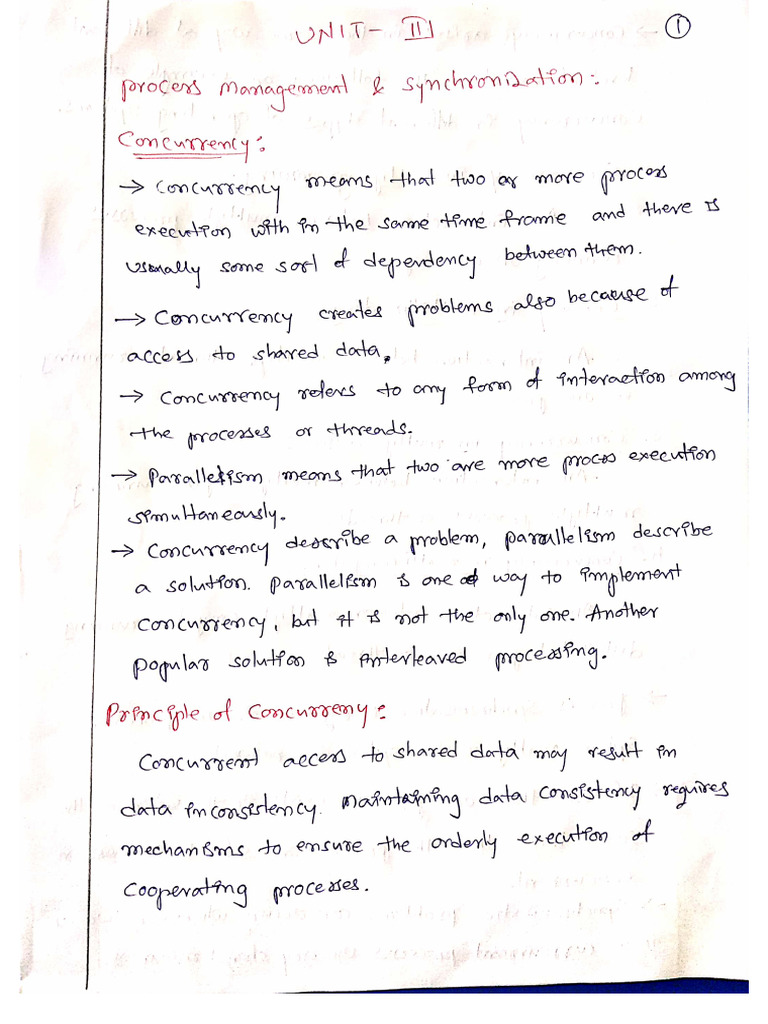 UNIT - III
1
Process Management & Synchronization:
Concurrency:
→ Concurrency means that two or more process
execution with in the same time frame and there is
usually some sort of dependency between them.
→ Concurrency creates problems also because of
access to shared data.
→ Concurrency refers to any form of interaction among
the processes or threads.
→ Parallelism means that two are more process execution
simultaneously.
→ Concurrency describe a problem, parallelism describe
a solution. Parallelism is one of way to implement
concurrency, but it is not the only one. Another
popular solution is interleaved processing.
Principle of Concurreny:
Concurrent access to shared data may result in
data inconsistency. Maintaining data consistency requires
mechanisms to ensure the orderly execution of
cooperating processes.